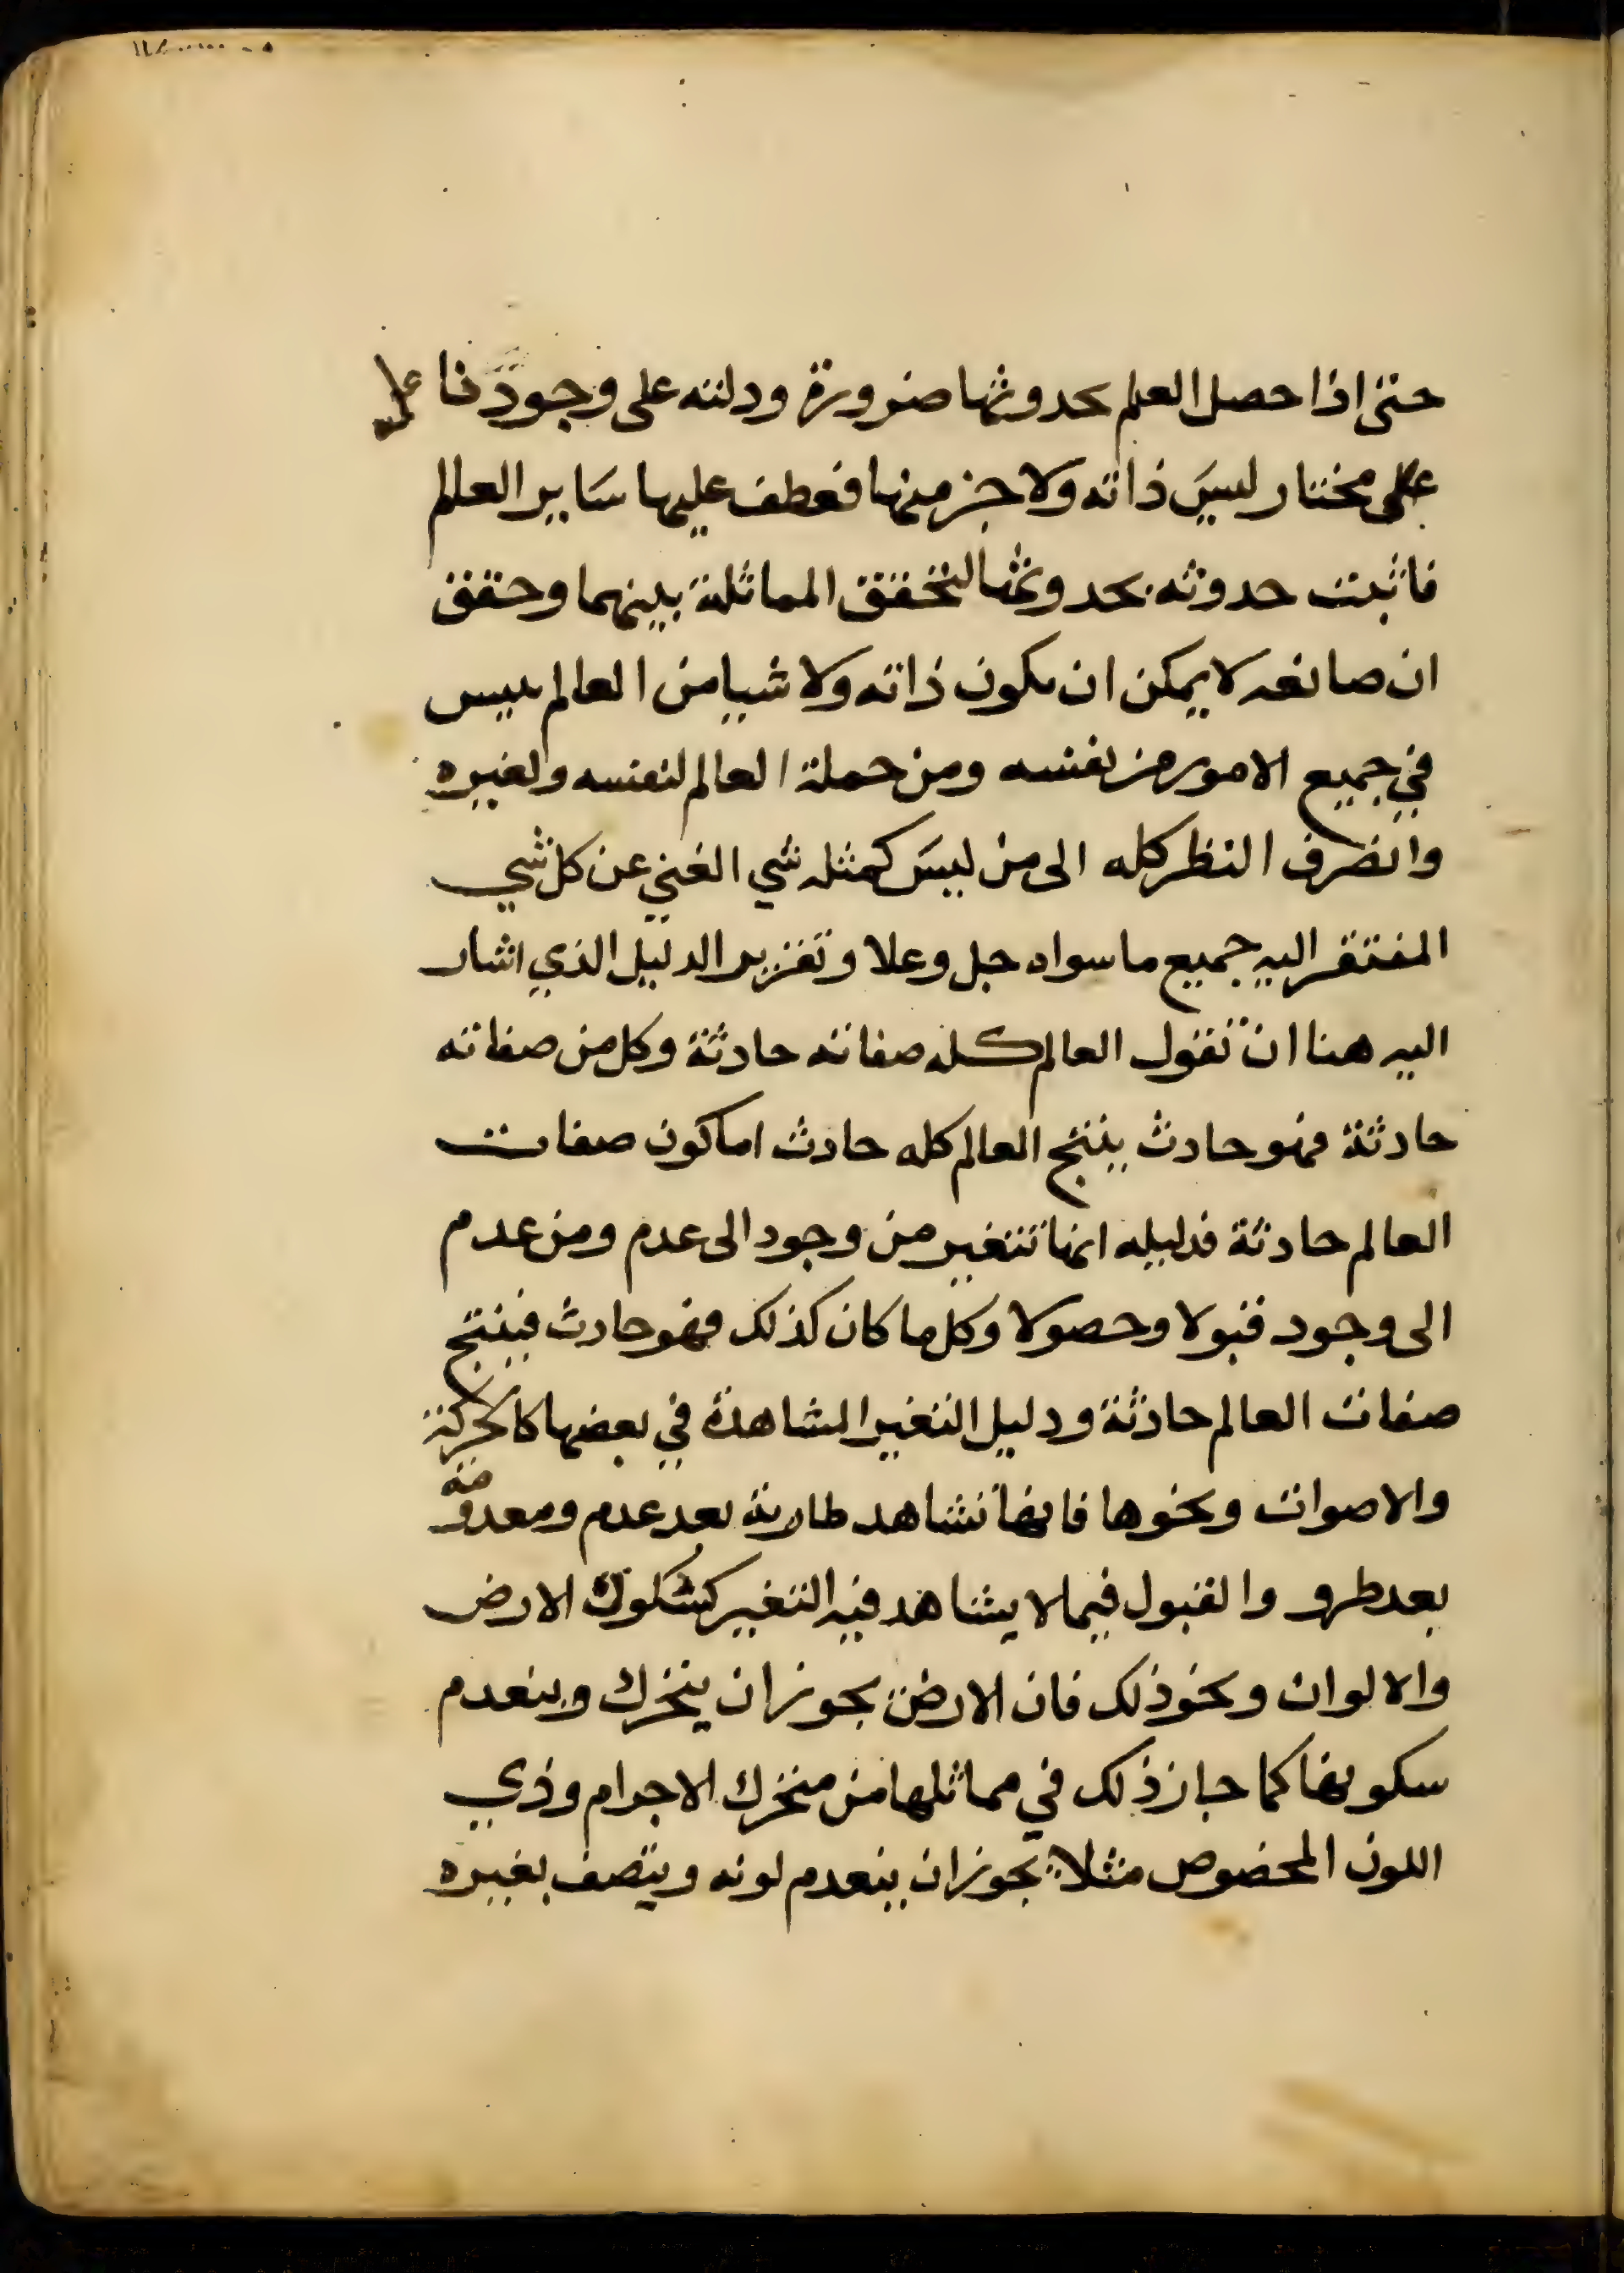 حتى اذا حصل العلم بحدوثها ضرورة ودلته على وجود فاعل
على مختار ليس ذاته ولا جزء منها فعطف عليها ساير العالم
فاثبت حدوثه بحدوثها لتحقق المماثلة بينهما وحقق
ان صانعه لا يمكن ان يكون ذاته ولا شيا من العالم ييس
في جميع الامور من نفسه ومن جملة العالم لنفسه ولغيره
وانصرف النظر كله الى من ليس كمثله شي الغني عن كل شي
المفتقر اليه جميع ما سواه جل وعلا وتقرير الدليل الذي اشار
اليه هنا ان نقول العالم كله صفاته حادثة وكل من صفاته
حادثة فهو حادث ينتج العالم كله حادث اما كون صفات
العالم حادثة فدليله انها تتغير من وجود الى عدم ومن عدم
الى وجود قبولا وحصولا وكل ما كان كذلك فهو حادث فينتج
صفات العالم حادثة ودليل التغير المشاهدة في بعضها كالحركة
والاصوات ونحوها فانها تشاهد طارية بعد عدم ومعدومة
بعد طرو والقبول فيما لا يشاهد فيه التغير كسكون الارض
والالوان ونحو ذلك فان الارض يجوز ان يتحرك وينعدم
سكونها كما جاز ذلك في مماثلها من متحرك الاجرام وذي
اللون المخصوص مثلا يجوز ان ينعدم لونه ويتصف بغيره